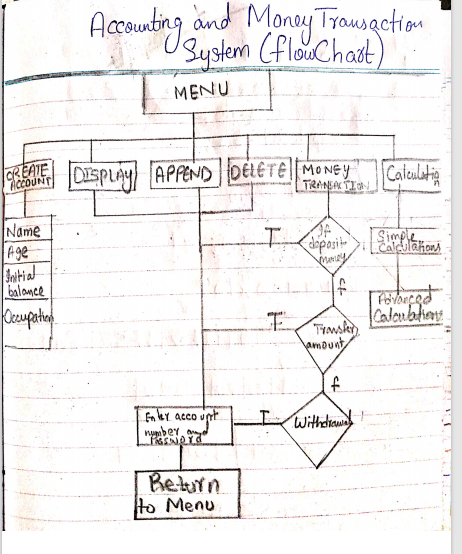 Accounting and Money Transaction
System (flowChart)
MENU
CREATE
ACCOUNT
DISPLAY
APPEND
DELETE
MONEY
TRANSACTION
Calculatio
n
Name
Age
Initial
balance
Occupation
If
deposit
money
T
f
Simple
Calculations
Advanced
Calculations
Transfer
amount
T
f
Withdrawal
T
Enter account
number and
Password
Return
to Menu